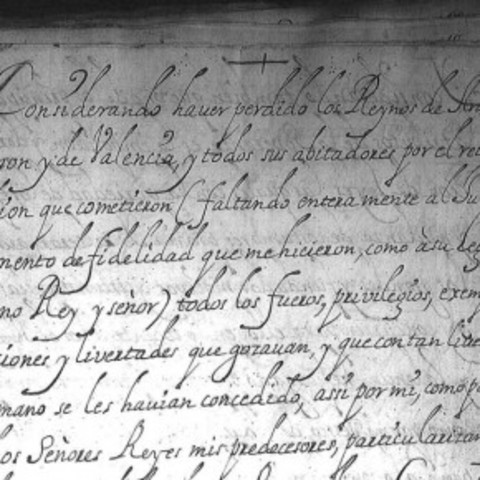 Considerando haver perdido los Reynos de Ara
gon y de Valencia, y todos sus abitadores por el reve
lion que cometieron (faltando entera mente al Ju
mento de fidelidad que me hicieron, como à su leg
mo Rey y señor) todos los fueros, privilegios, exemp
ciones y livertades que gozavan, y que con tan live
mano se les havian concedido, assi por mi, como po
los Señores Reyes mis predecesores, particularitan